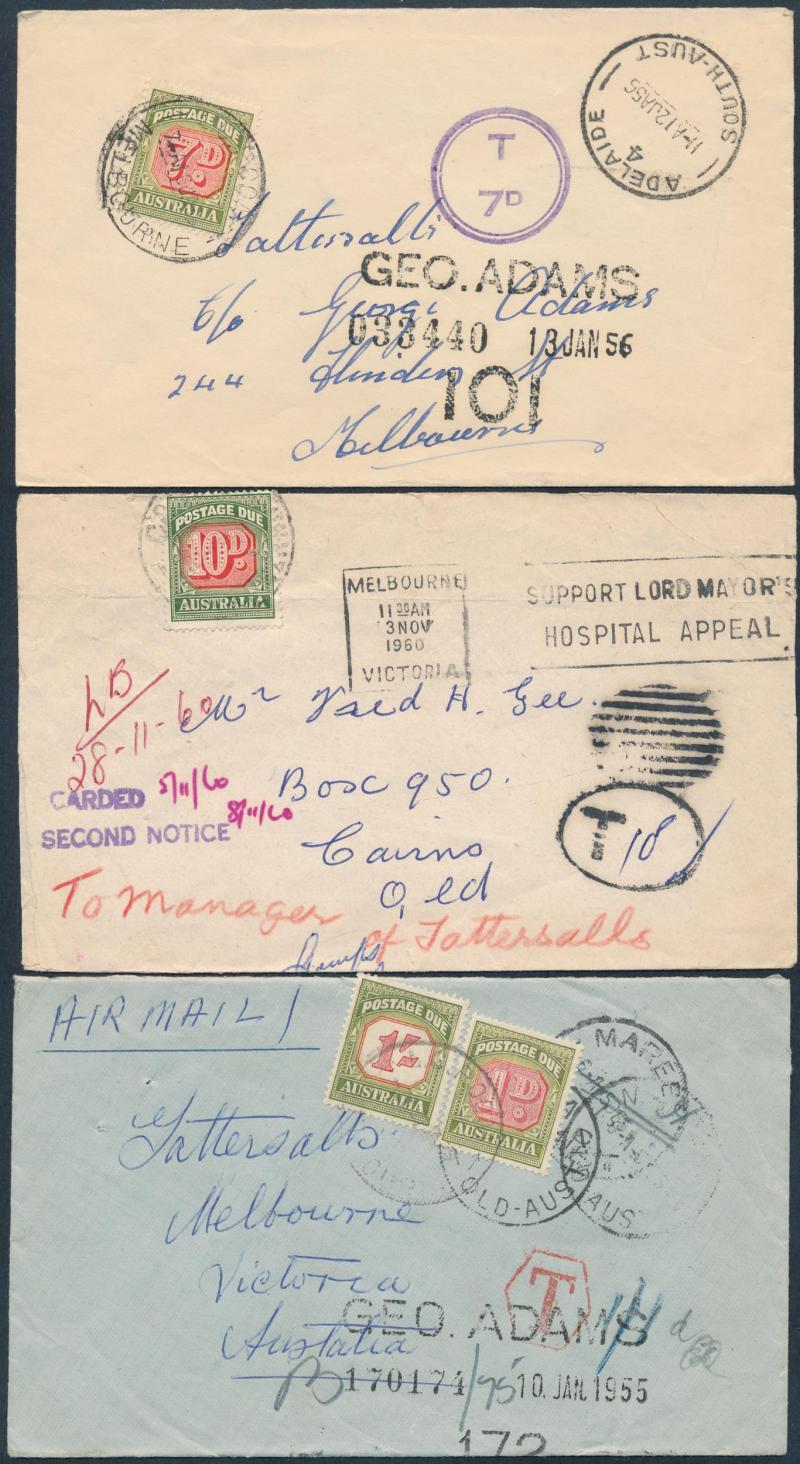 POSTAGE DUE
7D.
AUSTRALIA
MELBOURNE
T
7D
ADELAIDE
4
11-A 12JA56
SOUTH-AUST
Tattersalls
GEO. ADAMS
c/o George Adams
033440 13 JAN 56
244 Flinders St
101
Melbourne
POSTAGE DUE
10D.
AUSTRALIA
MELBOURNE
11 30 AM
3 NOV
1960
VICTORIA
SUPPORT LORD MAYOR'S
HOSPITAL APPEAL
LB
28-11-60
Mr H. Gee.
CARDED 5/11/60
Box 950.
SECOND NOTICE 8/11/60
T 10/
Cairns
Qld
To Manager of Tattersalls
AIR MAIL
POSTAGE DUE
1/-
AUSTRALIA
POSTAGE DUE
1D.
AUSTRALIA
MAREE
QLD-AUST
AUST
Tattersalls
Melbourne
Victoria
Australia
T
GEO. ADAMS
170174/75 10. JAN. 1955
172